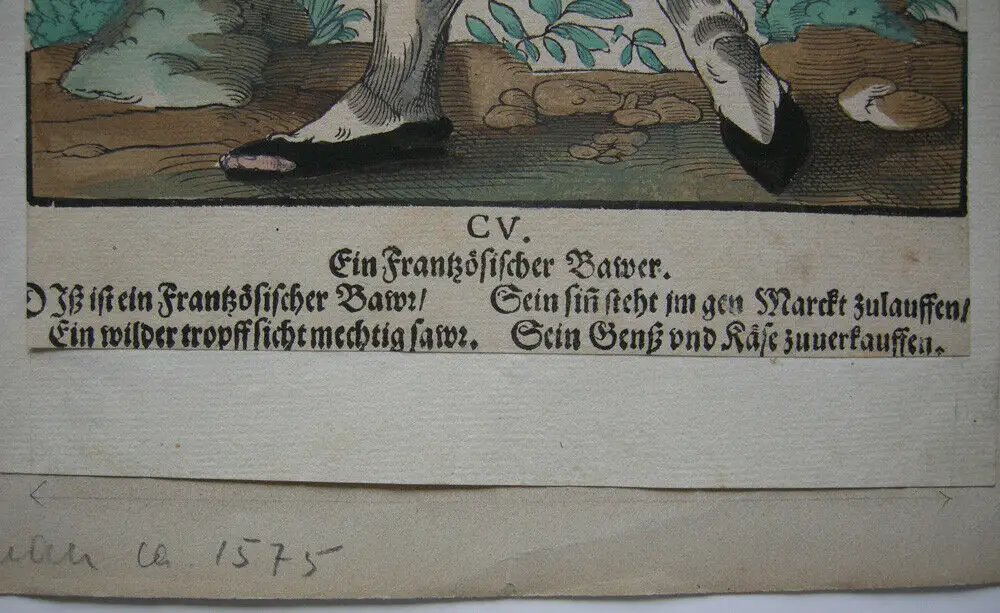 CV.
Ein Frantzösischer Bawer.
DIß ist ein Frantzösischer Bawr/
Ein wilder tropff sicht mechtig sawr.
Sein siñ steht jm gen Marckt zulauffen/
Sein Genß vnd Käse zuuerkauffen.
ca. 1575